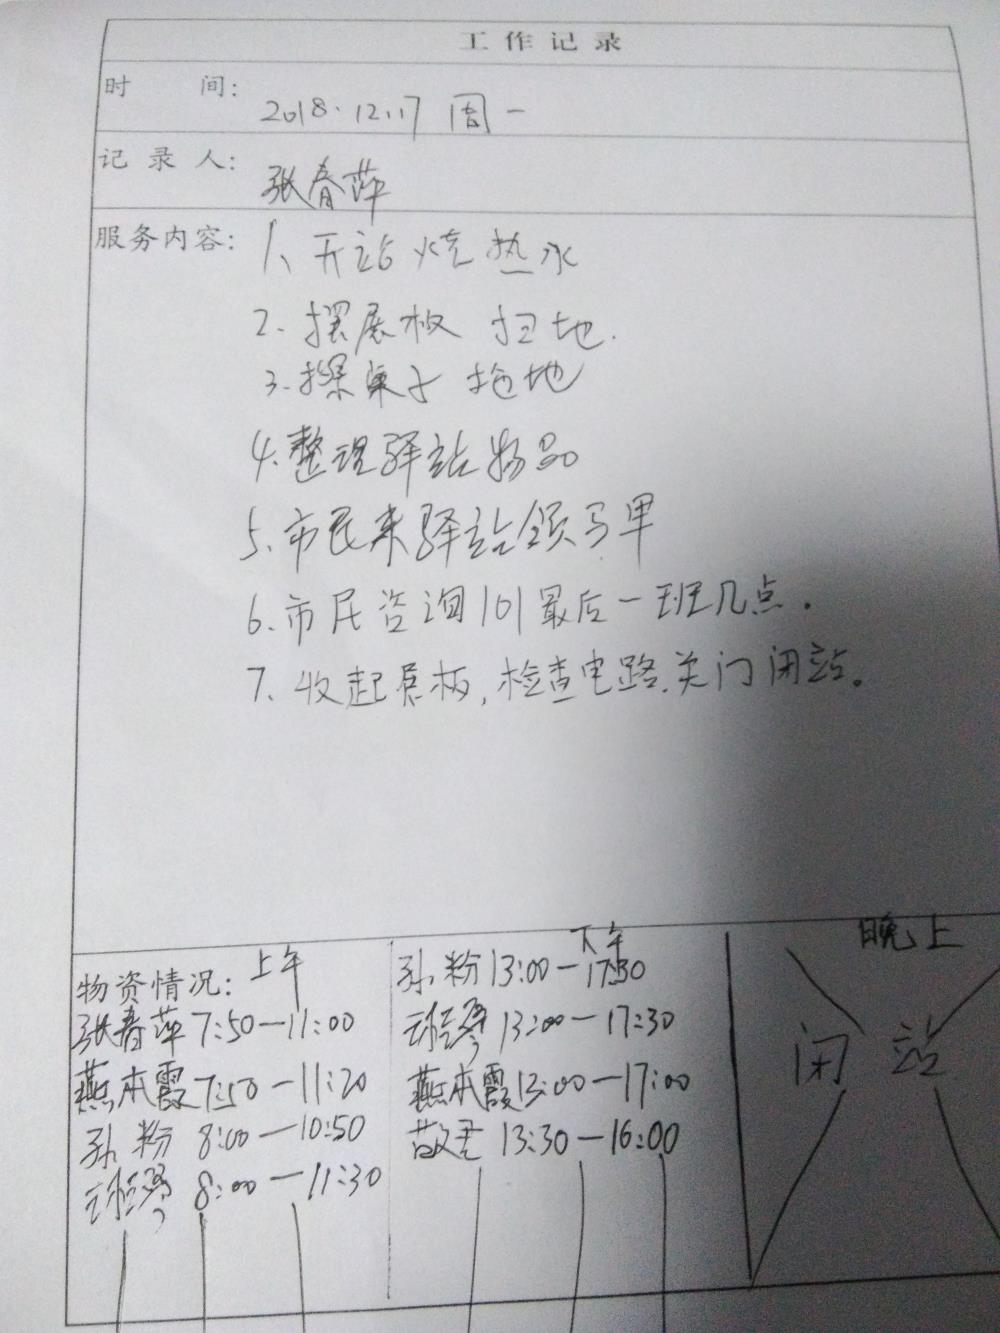 工作记录
时 间: 2018.12.17 周一
记录人: 张春萍
服务内容: 1、开站烧热水
2. 摆展板 扫地.
3. 擦桌子 拖地
4. 整理驿站物品
5. 市民来驿站领马甲
6. 市民咨询101最后一班几点.
7. 收起展板,检查电路.关门闭站。
物资情况: 上午
张春萍 7:50—11:00
燕本霞 7:50—11:20
孙粉 8:00—10:50
8:00—11:30
下午
孙粉 13:00—17:30
13:00—17:30
燕本霞 13:00—17:00
13:30—16:00
晚上
闭站